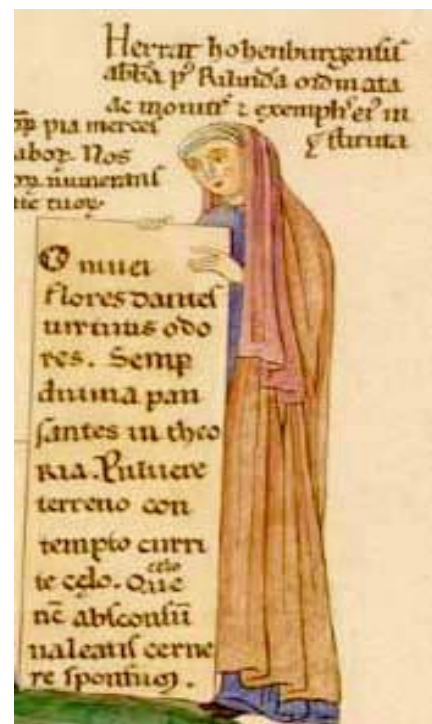 Herrat hohenburgensis
abba p' Rilinda ordinata
ac monitis ⁊ exemplis ei' in
stituta
pia merces
labor. Nos
numerans
tuor
O nivei
flores dantes
virtutis odo
res. Semp
divina pau
santes in theo
ria. Pulvere
terreno con
tempto curri
te celo. Que
celo
nc absconsū
valeatis cerne
re sponsum.